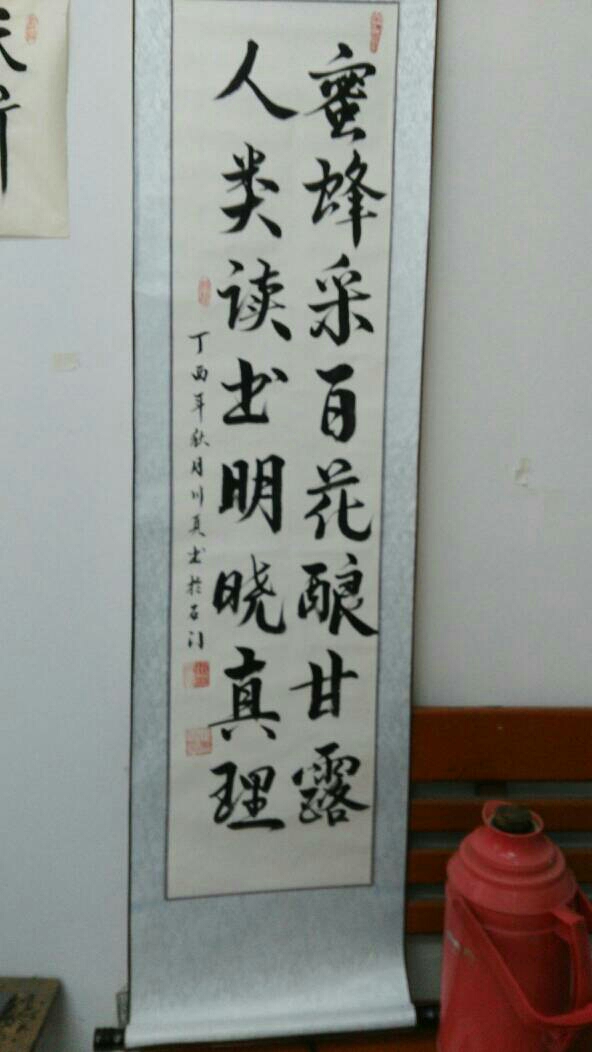 蜜蜂采百花酿甘露
人类读书明晓真理
丁酉年秋月川书於石门